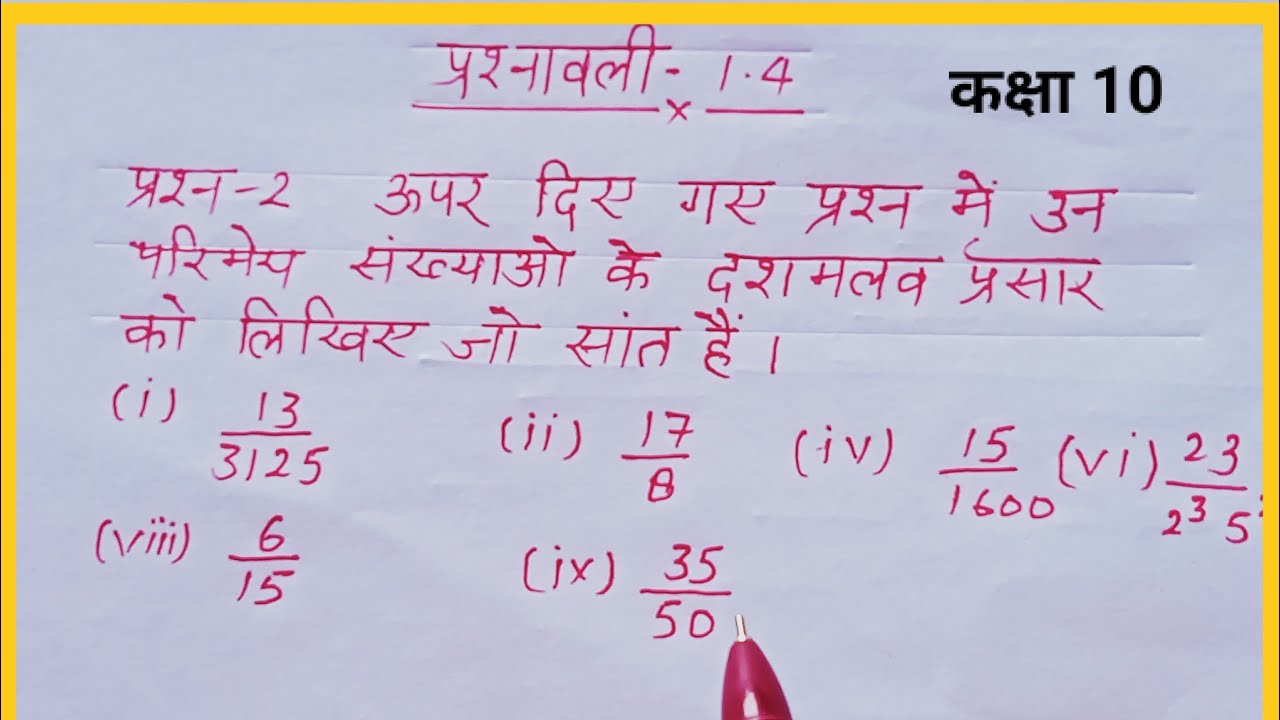 प्रश्नावली - 1.4
कक्षा 10
प्रश्न-2 ऊपर दिए गए प्रश्न में उन
परिमेय संख्याओ के दशमलव प्रसार
को लिखिए जो सांत हैं।
(i) 13/3125 (ii) 17/8 (iv) 15/1600 (vi) 23/2³ 5
(viii) 6/15 (ix) 35/50